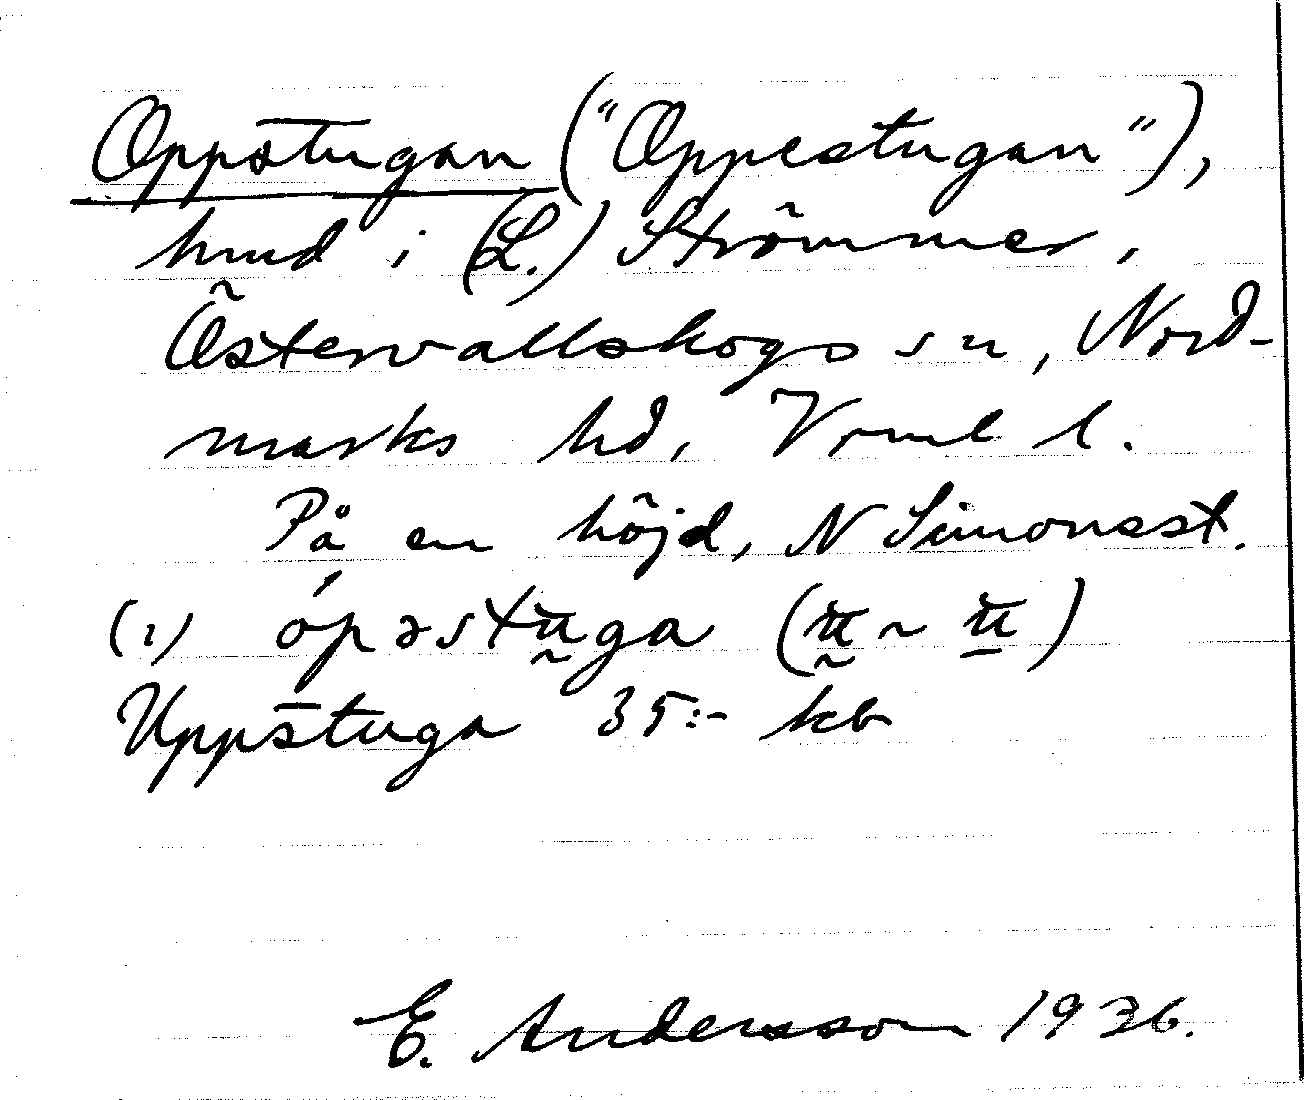 Oppstugan ("Oppestugan"),
hmd i (L.) Strömmer,
Östervallskogs sn, Nord-
marks hd, Vrml l.
På en höjd, N Simonsst.
(1) ópəstṵga (ṵ ~ u̱)
Uppstuga 35:- kb
E. Andersson 1936.